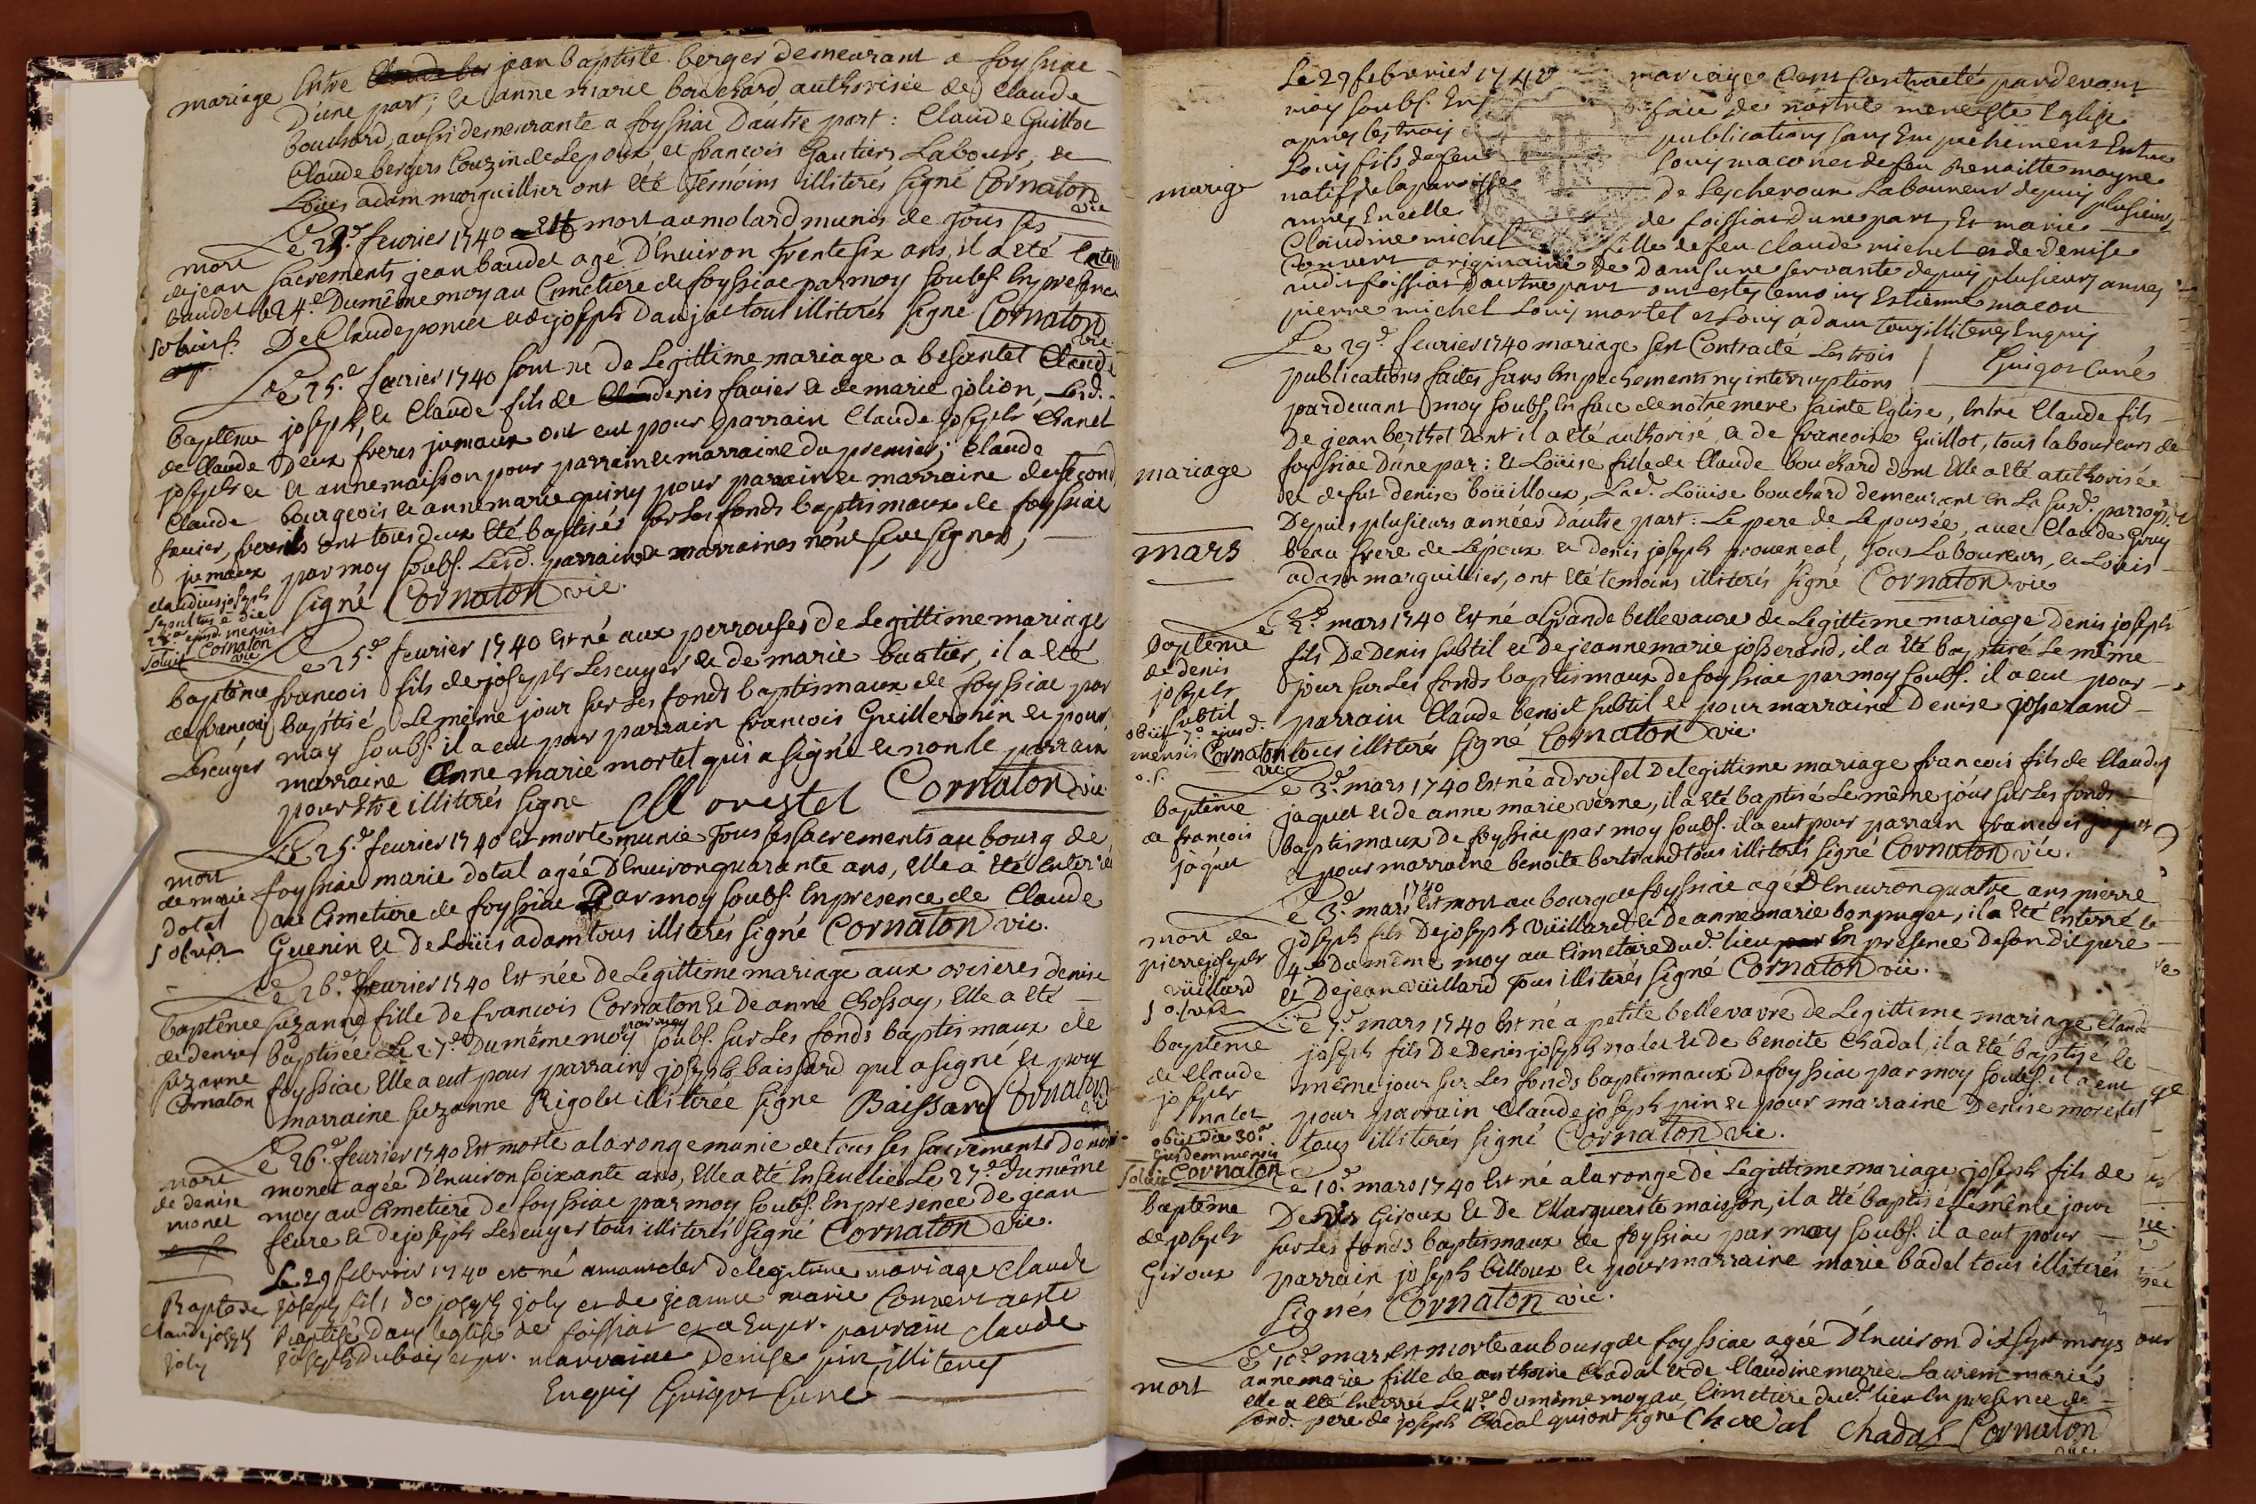 mariage Entre Claude ber jean baptiste berger demeurant a foyssiac
D'une part, et anne marie bouchard authorisée de Claude
bouchard, aussi demeurante a foyssiac D'autre part: Claude Guillot
Claude bergers Couzin de Lepoux, et francois Gautier Labours, et
Loüis adam marguillier ont été Temoins illiterés signé Cornaton vic
Le 23.e feurier 1740 Est mort au molard munis de Tous ses
mort de jean baudet
sacrements jean baudet agé D'Enuiron trente six ans, il a été Enterré
le 24.e Du même moy au Cimetiere de foyssiac par moy soubs. En presence
De Claude poncet et de joseph Daujat tout illiterés signé Cornaton vic
Le 25.e feurier 1740 sont né de Legittime mariage a besantet Claude
baptême de Claude joseph et Claude fauier, freres jumaux
joseph, et Claude fils de denis fauier et de marie jolion, Lesd.
Deux freres jumaux ont eut pour parrain Claude joseph Chanel
et anne maisson pour parrain et marraine du premier; Claude
bourgeois et anne marie quiny pour parrain et marraine du second
ils ont tous deux été baptisés sur Les fonds baptismaux de foyssiac
par moy soubs. Lesd. parrains et marraines
signé Cornaton vic.
Claudius joseph
sepultus e die
ejusd. mensis
Cornaton vic
Le 25.e feurier 1740 Est né aux perrouses de Legittime mariage
baptême de francois Lescuyer
francois fils de joseph Lescuyer et de marie bautier, il a été
baptisé Le même jour sur Les fonds baptismaux de foyssiac par
moy soubs. il a eut pour parrain francois Guillermin et pour
marraine Anne marie mortel qui a signé et non le parrain
pour être illiterés signe M mortel Cornaton vic
Le 25.e feurier 1740 Est morte munie Tous ses sacrements au bourg de
mort de marie dotal
foyssiac marie dotal agée D'Enuiron quarante ans, Elle a été enterrée
au Cimetiere de foyssiac Par moy soubs. En presence de Claude
Guenin et De Loüis adam tous illiterés signé Cornaton vic.
Le 26.e feurier 1740 Est née de Legittime mariage aux orcieres denise
baptême de denise suzanne Cornaton
suzanne fille de francois Cornaton et De anne Chossay, Elle a été
baptisée Le 27.e Du même moy par moy soubs. sur Les fonds baptismaux de
foyssiac Elle a eut pour parrain joseph baissard qui a signé et pour
marraine suzanne Rigolet illiterée signe Baissard Cornaton vic
Le 26.e feurier 1740 Est morte a la ronge munie de tous ses sacrements denise
mort de denise monet
monet agée D'Enuiron soixante ans, Elle a été Enseuelie Le 27.e du même
moy au Cimetiere de foyssiac par moy soubs. En presence De jean
feure et de joseph Lescuyer tous illiterés signé Cornaton vic.
Le 29 febvrier 1740 est né a de legitime mariage Claude
Bapt. de Claude joseph joly
joseph fils de joseph joly et de jeanne marie Convert a esté
Baptisé Dans l'eglise de foissiat et a eu pr. parrain Claude
joseph Dubois et pr. marraine Denise pin illiterés
Enquis Guigot Curé
Le 29 febvrier 1740 mariage a esté Contracté pardevant
moy soubs. En face de nostre mere ste Eglise
apres les trois publications sans Empechement Entre
Louis fils de feu Louis maconet de feu Benoitte moyne
mariage
natif de la paroisse de Lescheroux Laboureur depuis plusieurs
annees En celle de foissiat d'une part, Et marie
Claudine michel fille de feu Claude michel et de Denise
Convert originaire de Domsure servante depuis plusieurs annes
audit foissiat d'autre part ont estes temoins Estienne macon
pierre michel Louis martel et Louis adam tous illiteres Enquis
Guigot Curé
Le 29.e feurier 1740 mariage s'est Contracté Les trois
publications faites sans Empechements ny interruptions
pardeuant moy soubs. En face de nôtre mere sainte Eglise, Entre Claude fils
De jean berthet Dont il a été authorisé, et de francoise Guillot, tous laboureurs de
mariage
foyssiac D'une par: Et Loüise fille de Claude bouchard dont Elle a été authorisée
et defut denise boüilloux, Lad. Loüise bouchard demeurant En La susd. parroisse
Depuis plusieurs années D'autre part: Le pere de Lepousée, avec Claude Gruy
beau frere de Lepoux et denis joseph prouencal, tous Laboureurs, et Loüis
adam marguillier, ont été temoins illiterés signé Cornaton vic
mars
Le 2.e mars 1740 Est né a Grande bellevaure de Legittime mariage Denis joseph
Baptême de denis joseph subtil
fils De Denis subtil et De jeanne marie josserand, il a été baptisé Le même
jour sur Les fonds baptismaux de foyssiac par moy soubs. il a eut pour
parrain Claude benoit subtil et pour marraine Denise josserand
obiit 7.o ejusd. mensis Cornaton vic
tous illiterés signé Cornaton vic.
Le 3.e mars 1740 Est né a droisel De legittime mariage francois fils de Claude
baptême de francois jaquet
jaquet et de anne marie verne, il a été baptisé Le même jour sur Les fonds
baptismaux De foyssiac par moy soubs. il a eut pour parrain francois jaquet
et pour marraine benoite bertrand tous illiterés signé Cornaton vic.
Le 3.e mars 1740 Est mort au bourg de foyssiac agé D'Enuiron quatre ans pierre
mort de pierre joseph vüillard
joseph fils De joseph Vüillard et De anne marie bonpuget, il a été Enterré le
4.e Du même moy au Cimetiere Dud. lieu par En présence De son Dit pere
et De jean vüillard Tous illiterés signé Cornaton vic.
Le 7.e mars 1740 Est né a petite bellevavre de Legittime mariage Claude
baptême de Claude joseph nalet
joseph fils De Denis joseph nalet et de benoite Chadal, il a été baptisé le
même jour sur Les fonds baptismaux De foyssiac par moy soubs. il a eut
pour parrain Claude joseph pin et pour marraine Denise morestel
tous illiterés signé Cornaton vic.
obiit die 30.a
ejusdem mensis
Cornaton
Le 10.e mars 1740 Est né a la ronge De Legittime mariage joseph fils de
baptême de joseph Giroux
Denis Giroux et De Marguerite maisson, il a été baptise Le même jour
sur Les fonds baptismaux de foyssiac par moy soubs. il a eut pour
parrain joseph billoux et pour marraine marie badel tous illiterés
signés Cornaton vic.
Le 10.e mars Est morte au bourg de foyssiac agée D'Enuiron dix sept moys
mort
anne marie fille de anthoine Chadal et de Claudine marie Laurent mariés
elle a été Enterrée Le 11.e du même moy au Cimetiere Dud. lieu En presence de
sond. pere de joseph Chadal qui ont signé Chadal Chadal Cornaton vic